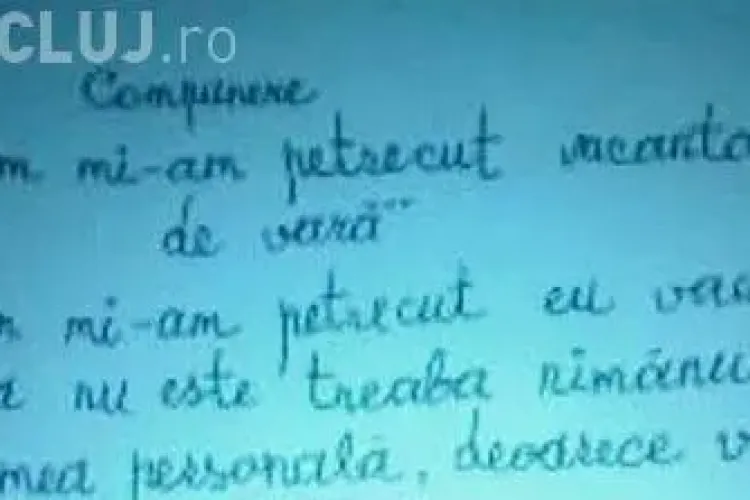 CLUJ.ro
Compunere
m mi-am petrecut vacanta
de vară"
n mi-am petrecut eu vac
a nu este treaba nimănui
mea personală, deoarece v